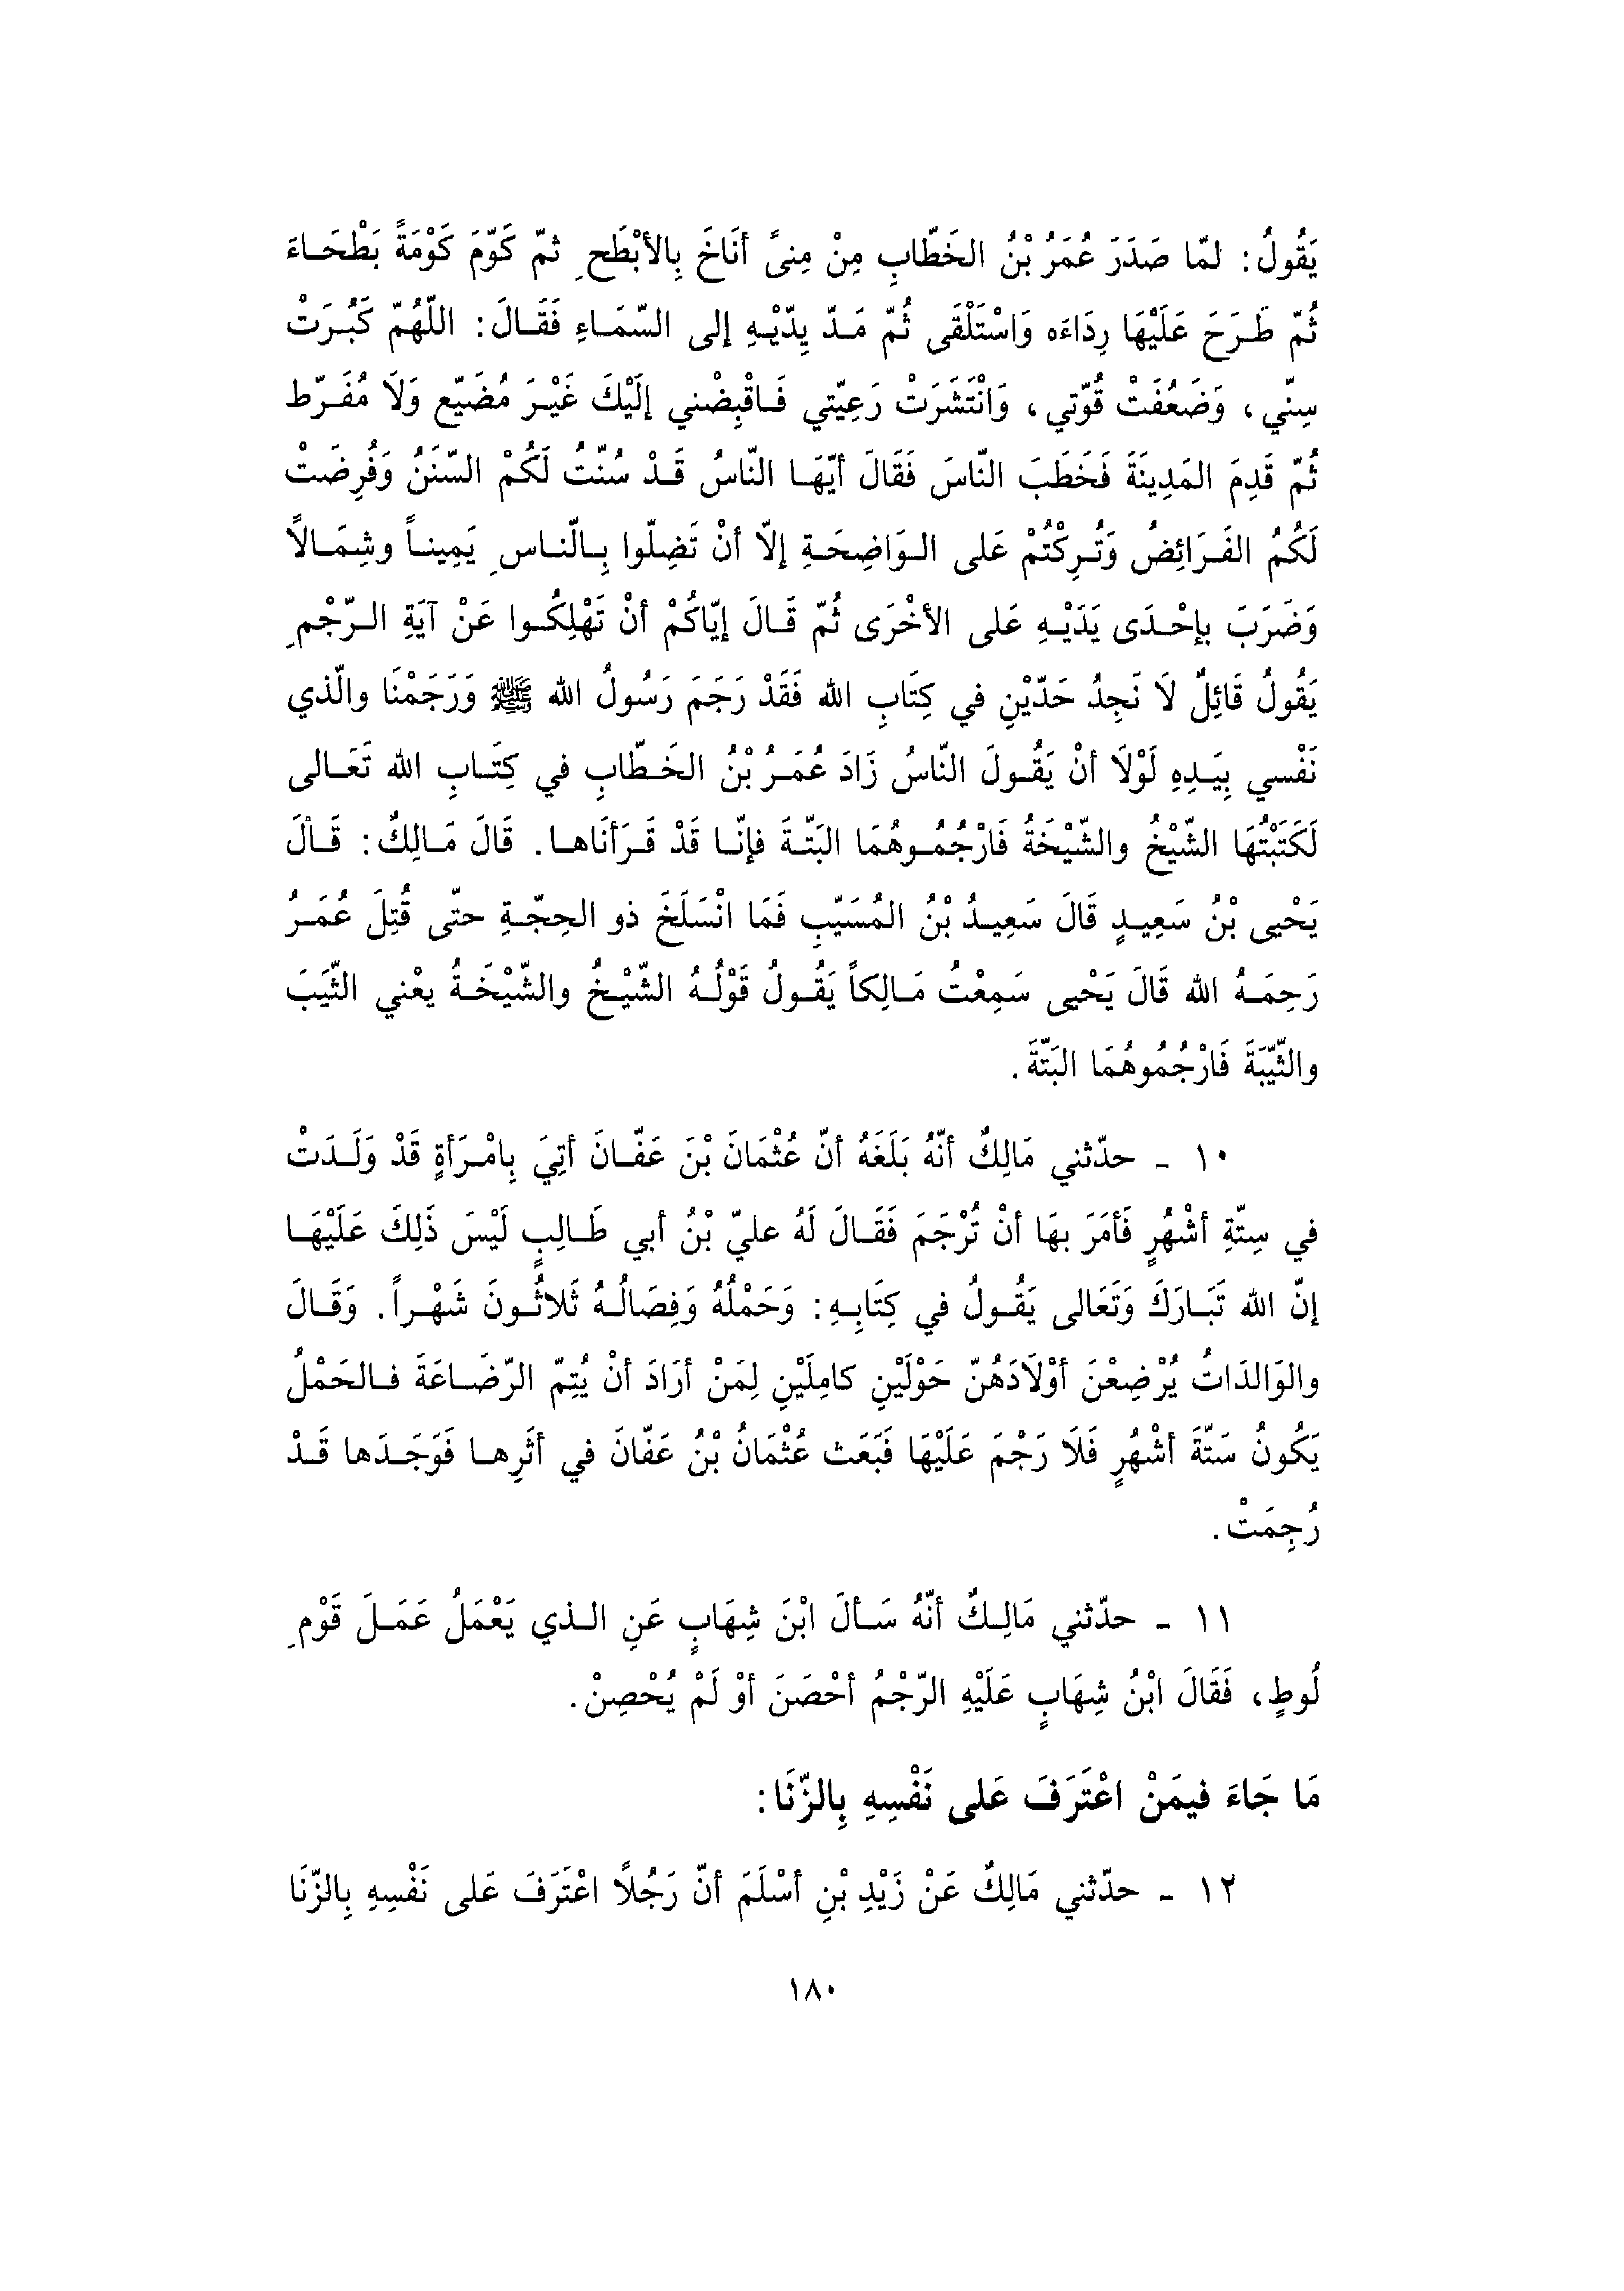 يَقُولُ: لمّا صَدَرَ عُمَرُ بْنُ الخَطّابِ مِنْ مِنىً أنَاخَ بِالأبْطَحِ ثمّ كَوّمَ كَوْمَةً بَطْحَاءَ
ثُمّ طَرَحَ عَلَيْهَا رِدَاءَه وَاسْتَلْقَى ثُمّ مَدّ يِدّيْهِ إلى السّمَاءِ فَقَالَ: اللّهُمّ كَبُرَتْ
سِنّي، وَضَعُفَتْ قُوّتي، وَانْتَشَرَتْ رَعِيّتي فَاقْبِضْني إلَيْكَ غَيْرَ مُضَيّع وَلَا مُفَرّط
ثُمّ قَدِمَ المَدِينَةَ فَخَطَبَ النّاسَ فَقَالَ أيّهَا النّاسُ قَدْ سُنّتُ لَكُمْ السّنَنُ وَفُرِضَتْ
لَكُمُ الفَرَائِضُ وَتُرِكْتُمْ عَلى الوَاضِحَةِ إلّا أنْ تَضِلّوا بِالّناسِ يَمِيناً وشِمَالًا
وَضَرَبَ بإحْدَى يَدَيْهِ عَلى الأخْرَى ثُمّ قَالَ إيّاكُمْ أنْ تَهْلِكُوا عَنْ آيَةِ الرّجْمِ
يَقُولُ قَائِلٌ لَا نَجِدُ حَدّيْنِ في كِتَابِ الله فَقَدْ رَجَمَ رَسُولُ الله ﷺ وَرَجَمْنَا والّذي
نَفْسي بِيَدِهِ لَوْلَا أنْ يَقُولَ النّاسُ زَادَ عُمَرُ بْنُ الخَطّابِ في كِتَابِ الله تَعَالى
لَكَتَبْتُهَا الشّيْخُ والشّيْخَةُ فَارْجُمُوهُمَا البَتّةَ فإنّا قَدْ قَرَأنَاها. قَالَ مَالِكٌ: قَالَ
يَحْيى بْنُ سَعِيدٍ قَالَ سَعِيدُ بْنُ المُسَيّبِ فَمَا انْسَلَخَ ذو الحِجّةِ حتّى قُتِلَ عُمَرُ
رَحِمَهُ الله قَالَ يَحْيى سَمِعْتُ مَالِكاً يَقُولُ قَوْلُهُ الشّيْخُ والشّيْخَةُ يعْني الثّيَبَ
والثّيّبَةَ فَارْجُمُوهُمَا البَتّةَ.
١٠ - حدّثني مَالِكٌ أنّهُ بَلَغَهُ أنّ عُثْمَانَ بْنَ عَفّانَ أتِيَ بِامْرَأةٍ قَدْ وَلَدَتْ
في سِتّةِ أشْهُرٍ فَأمَرَ بهَا أنْ تُرْجَمَ فَقَالَ لَهُ عليّ بْنُ أبي طَالِبٍ لَيْسَ ذَلِكَ عَلَيْهَا
إنّ الله تَبَارَكَ وَتَعَالى يَقُولُ في كِتَابِهِ: وَحَمْلُهُ وَفِصَالُهُ ثَلاثُونَ شَهْراً. وَقَالَ
والوَالدَاتُ يُرْضِعْنَ أوْلَادَهُنّ حَوْلَيْنِ كامِلَيْنِ لِمَنْ أرَادَ أنْ يُتِمّ الرّضَاعَةَ فالحَمْلُ
يَكُونُ سَتّةَ أشْهُرٍ فَلَا رَجْمَ عَلَيْهَا فَبَعَث عُثْمَانُ بْنُ عَفّانَ في أثَرِها فَوَجَدَها قَدْ
رُجِمَتْ.
١١ - حدّثني مَالِكٌ أنّهُ سَألَ ابْنَ شِهَابٍ عَنِ الذي يَعْمَلُ عَمَلَ قَوْمِ
لُوطٍ، فَقَالَ ابْنُ شِهَابٍ عَلَيْهِ الرّجْمُ أحْصَنَ أوْ لَمْ يُحْصِنْ.
مَا جَاءَ فيمَنْ اعْتَرَفَ عَلى نَفْسِهِ بِالزّنَا:
١٢ - حدّثني مَالِكٌ عَنْ زَيْدِ بْنِ أسْلَمَ أنّ رَجُلاً اعْتَرَفَ عَلى نَفْسِهِ بِالزّنَا
١٨٠